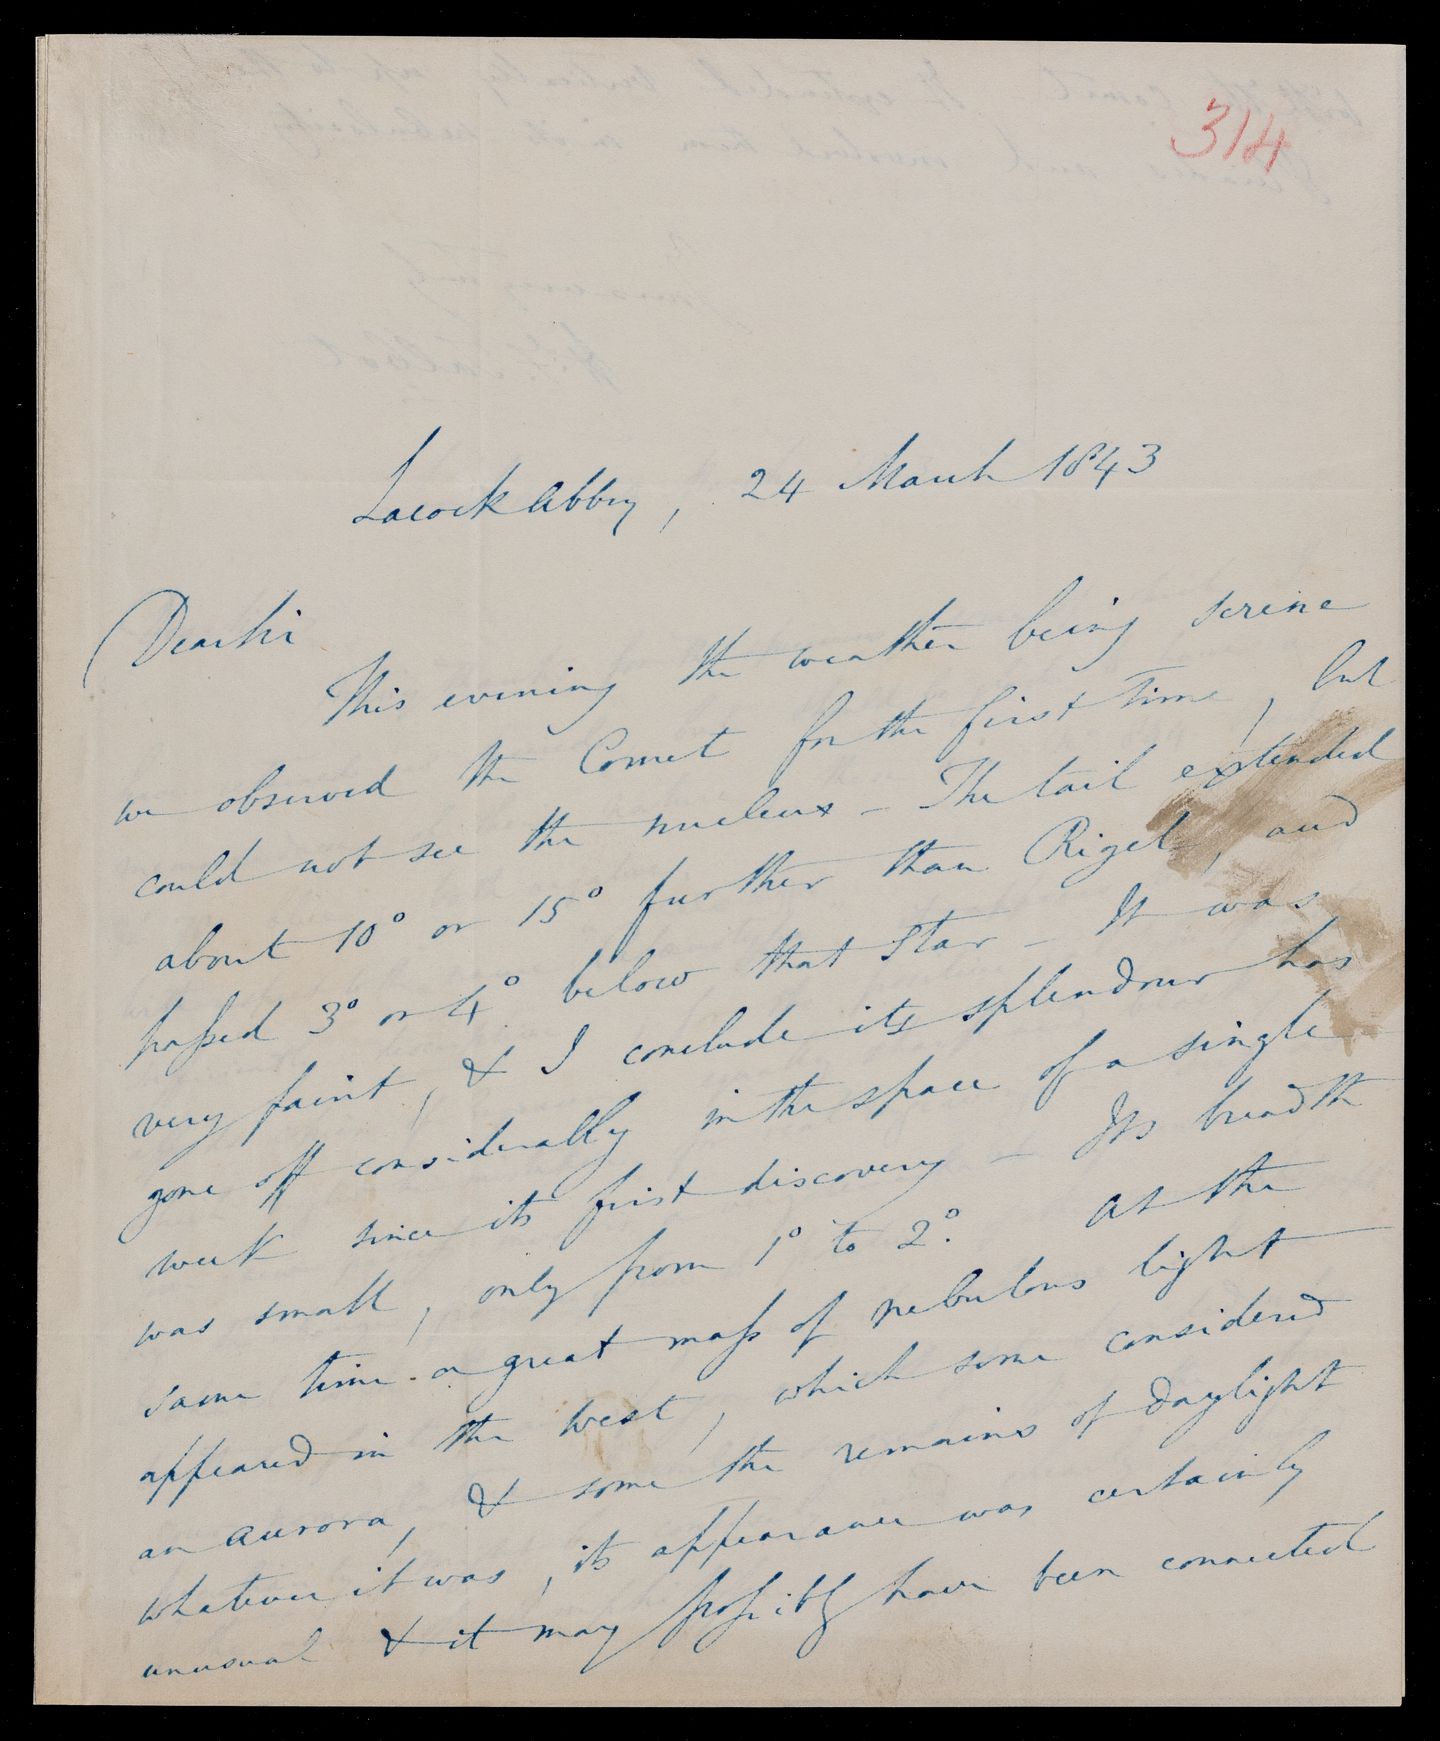 314
Lacock Abbey, 24 March 1843
Dear Sir
This evening the weather being serene
we observed the Comet for the first time, but
could not see the nucleus – The tail extended
about 10° or 15° further than Rigel, and
passed 3° or 4° below that star – It was
very faint, & I conclude its splendour has
gone off considerably in the space of a single
week since its first discovery – Its breadth
was small, only from 1° to 2°. At the
same time a great mass of nebulous light
appeared in the west, which some considered
an aurora, & some the remains of daylight
whatever it was, its appearance was certainly
unusual & it may possibly have been connected